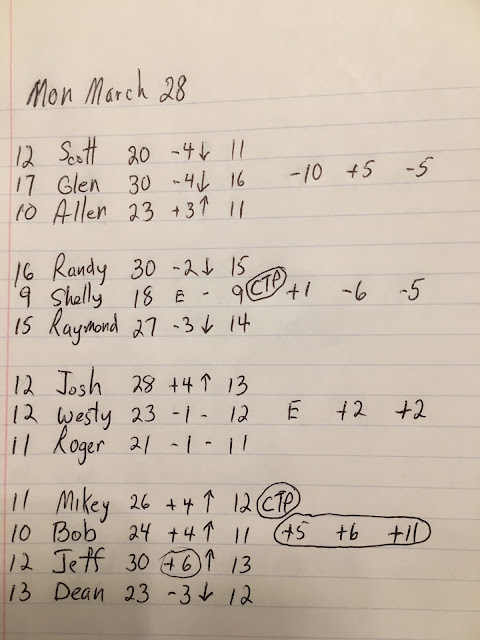 Mon March 28
12 Scott 20 -4↓ 11
17 Glen 30 -4↓ 16 -10 +5 -5
10 Allen 23 +3↑ 11
16 Randy 30 -2↓ 15
9 Shelly 18 E - 9 CTP +1 -6 -5
15 Raymond 27 -3↓ 14
12 Josh 28 +4↑ 13
12 Westy 23 -1 - 12 E +2 +2
11 Roger 21 -1 - 11
11 Mikey 26 +4↑ 12 CTP
10 Bob 24 +4↑ 11 +5 +6 +11
12 Jeff 30 +6↑ 13
13 Dean 23 -3↓ 12